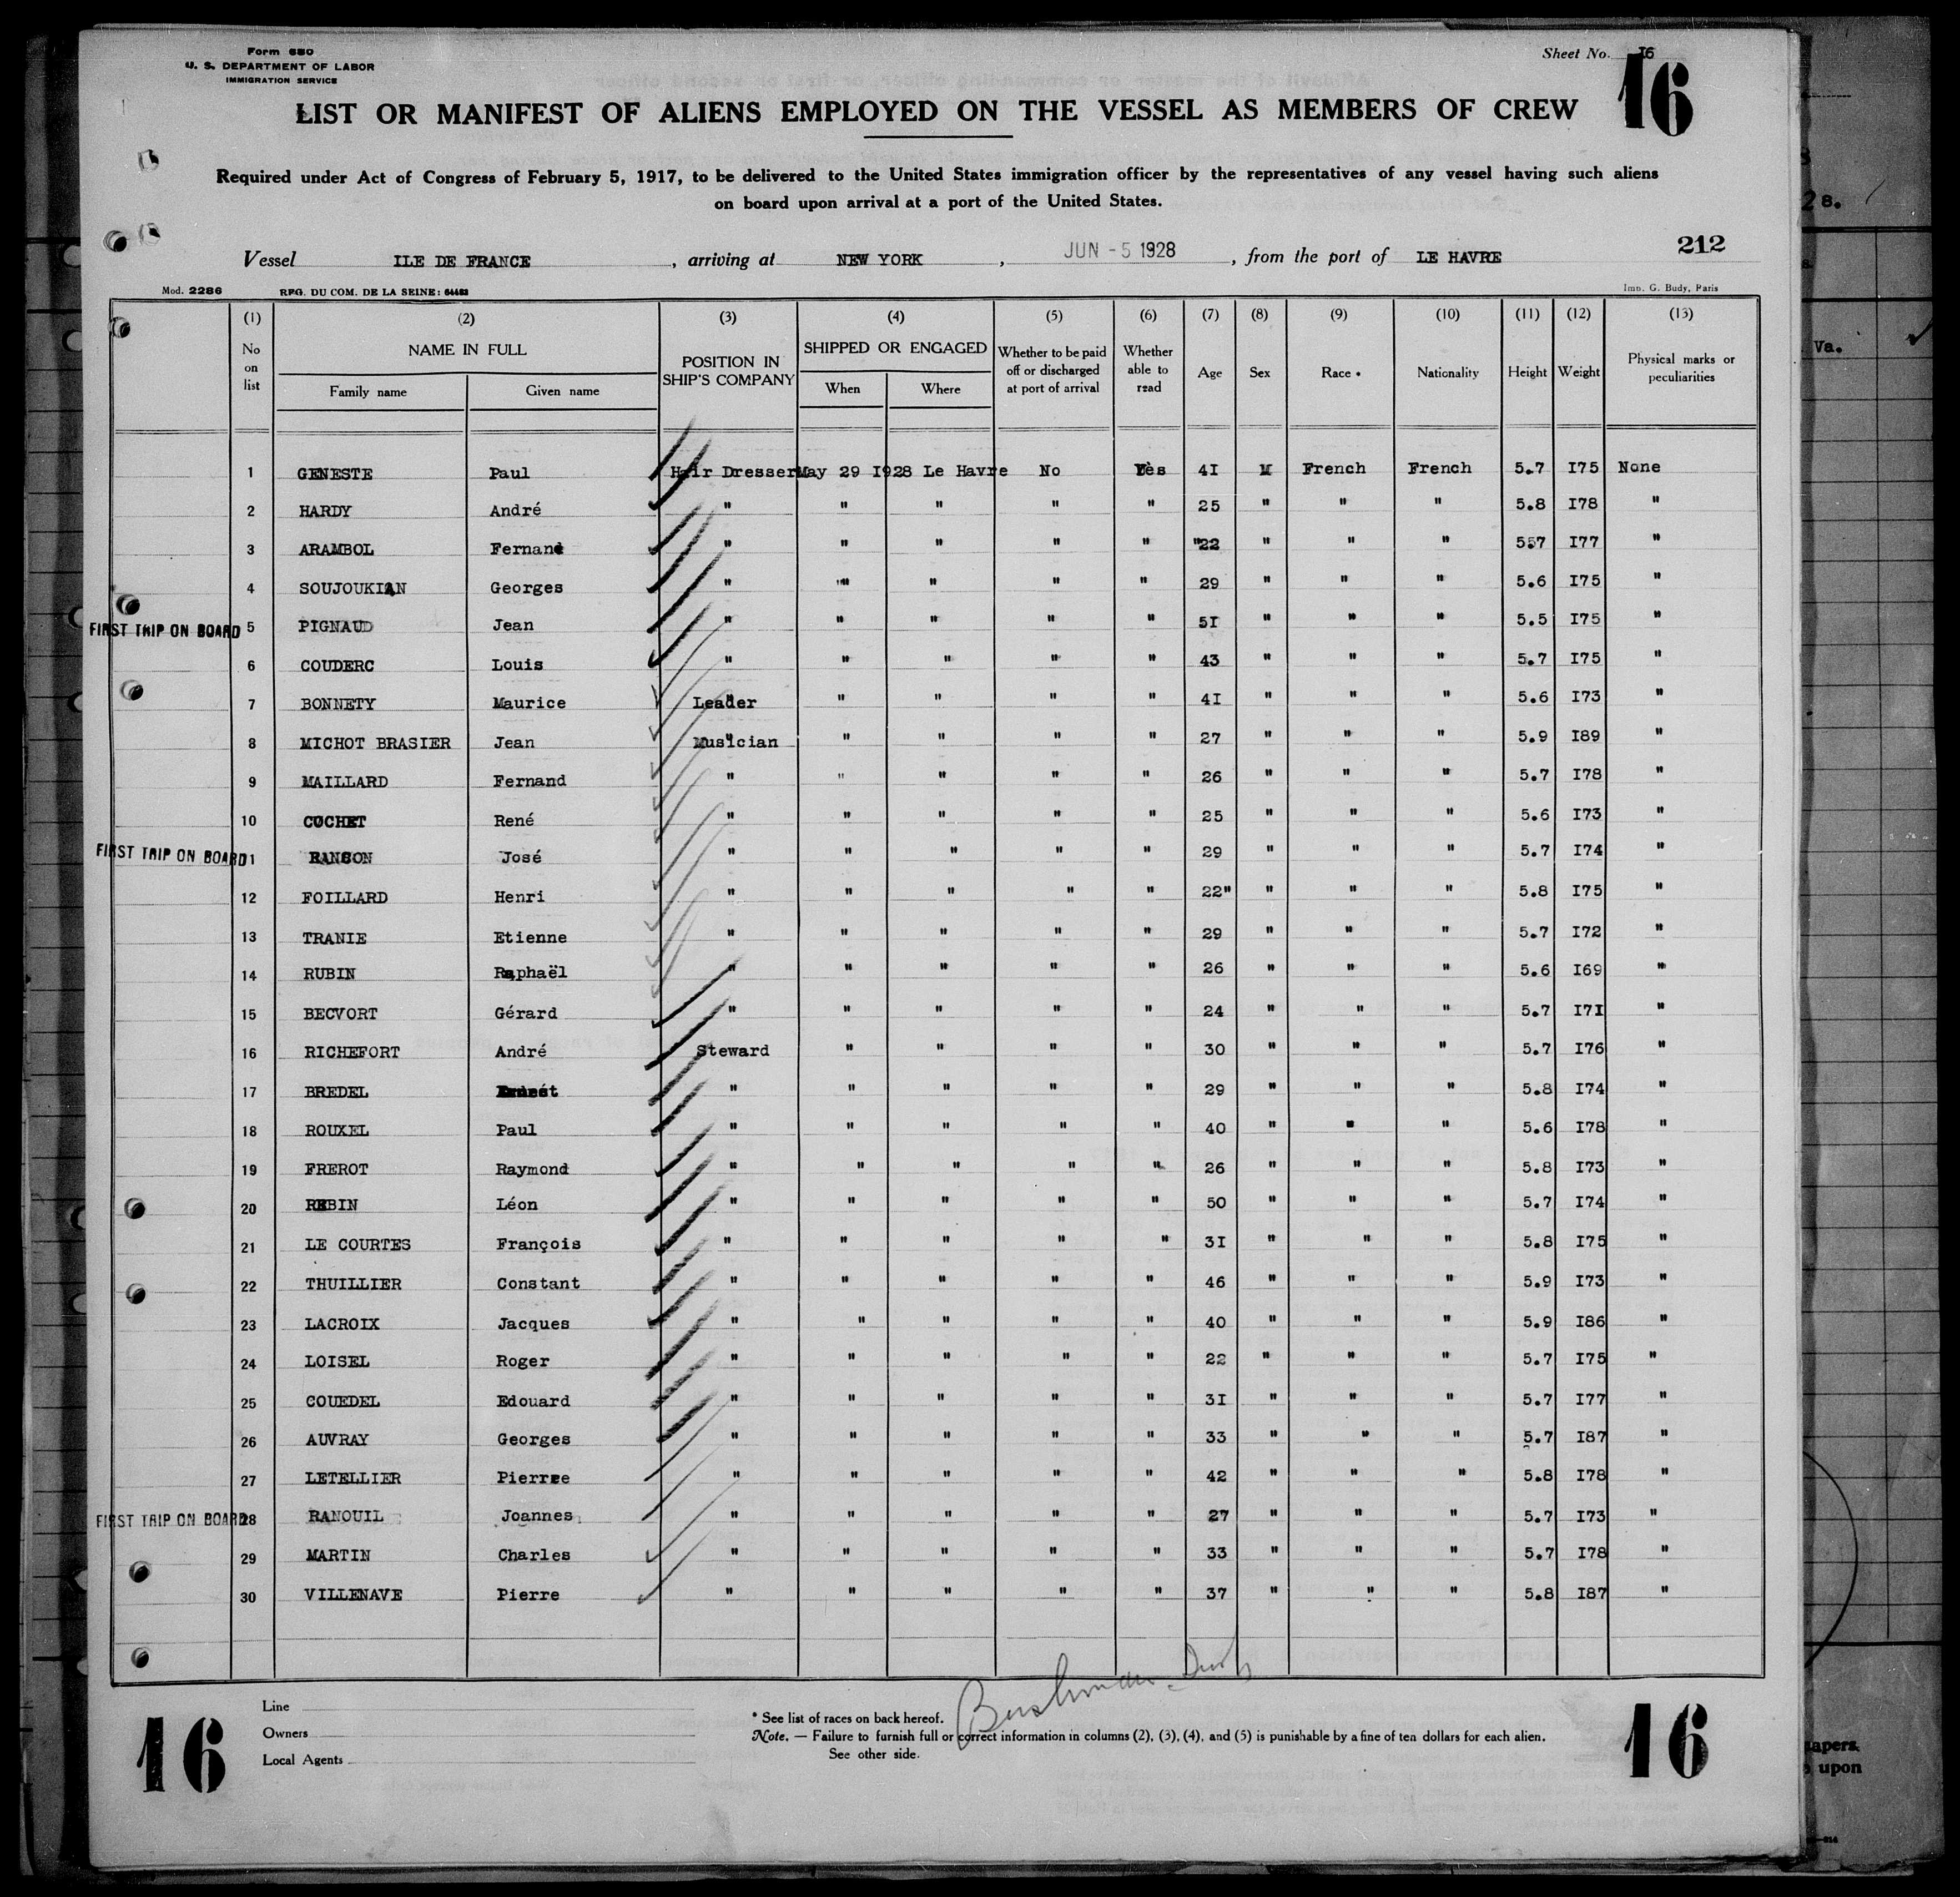 Form 680
U. S. DEPARTMENT OF LABOR
IMMIGRATION SERVICE
Sheet No. I6
16
LIST OR MANIFEST OF ALIENS EMPLOYED ON THE VESSEL AS MEMBERS OF CREW
Required under Act of Congress of February 5, 1917, to be delivered to the United States immigration officer by the representatives of any vessel having such aliens
on board upon arrival at a port of the United States.
212
Vessel ILE DE FRANCE, arriving at NEW YORK, JUN - 5 1928, from the port of LE HAVRE
Mod. 2286 REG. DU COM. DE LA SEINE: Imp. G. Budy, Paris
(1) (2) (3) (4) (5) (6) (7) (8) (9) (10) (11) (12) (13)
No on list NAME IN FULL Family name Given name POSITION IN SHIP'S COMPANY SHIPPED OR ENGAGED When Where Whether to be paid off or discharged at port of arrival Whether able to read Age Sex Race * Nationality Height Weight Physical marks or peculiarities
1 GENESTE Paul Hair Dresser May 29 I928 Le Havre No Yès 4I M French French 5.7 I75 None
2 HARDY André " " " " " 25 " " " 5.8 I78 "
3 ARAMBOL Fernand " " " " " "22 " " " 557 I77 "
4 SOUJOUKIAN Georges " " " " " 29 " " " 5.6 I75 "
FIRST TRIP ON BOARD 5 PIGNAUD Jean " " " " " 5I " " " 5.5 I75 "
6 COUDERC Louis " " " " " 43 " " " 5.7 I75 "
7 BONNETY Maurice Leader " " " " " 4I " " " 5.6 I73 "
8 MICHOT BRASIER Jean Musician " " " " " 27 " " " 5.9 I89 "
9 MAILLARD Fernand " " " " " 26 " " " 5.7 I78 "
10 COCHET René " " " " " 25 " " " 5.6 I73 "
FIRST TRIP ON BOARD 11 RANSON José " " " " " 29 " " " 5.7 I74 "
12 FOILLARD Henri " " " " " 22" " " " 5.8 I75 "
13 TRANIE Etienne " " " " " 29 " " " 5.7 I72 "
14 RUBIN Raphaël " " " " " 26 " " " 5.6 I69 "
15 BECVORT Gérard " " " " " 24 " " " 5.7 I7I "
16 RICHEFORT André Steward " " " " 30 " " " 5.7 I76 "
17 BREDEL " " " " " 29 " " " 5.8 I74 "
18 ROUXEL Paul " " " " " 40 " " " 5.6 I78 "
19 FREROT Raymond " " " " " 26 " " " 5.8 I73 "
20 REBIN Léon " " " " " 50 " " " 5.7 I74 "
21 LE COURTES François " " " " " 3I " " " 5.8 I75 "
22 THUILLIER Constant " " " " " 46 " " " 5.9 I73 "
23 LACROIX Jacques " " " " " 40 " " " 5.9 I86 "
24 LOISEL Roger " " " " " 22 " " " 5.7 I75 "
25 COUEDEL Edouard " " " " " 3I " " " 5.7 I77 "
26 AUVRAY Georges " " " " " 33 " " " 5.7 I87 "
27 LETELLIER Pierre " " " " " 42 " " " 5.8 I78 "
FIRST TRIP ON BOARD 28 RANOUIL Joannes " " " " " 27 " " " 5.7 I73 "
29 MARTIN Charles " " " " " 33 " " " 5.7 I78 "
30 VILLENAVE Pierre " " " " " 37 " " " 5.8 I87 "
16
Line
Owners
Local Agents
* See list of races on back hereof.
Note. — Failure to furnish full or correct information in columns (2), (3), (4), and (5) is punishable by a fine of ten dollars for each alien.
See other side.
16
Va.
upon